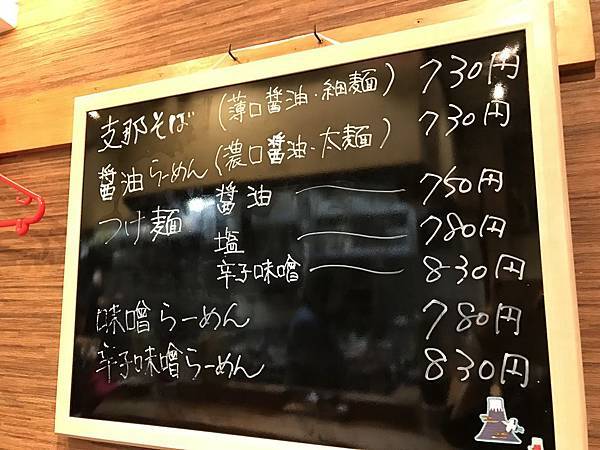 支那そば (薄口醤油・細麺) 730円
醤油らーめん (濃口醤油・太麺) 730円
つけ麺 醤油 750円
塩 780円
辛子味噌 830円
味噌らーめん 780円
辛子味噌らーめん 830円